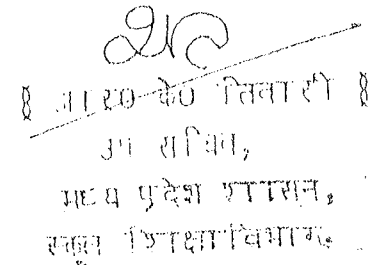 ॥ आर0 के0 तिवारी ॥
उप सचिव,
मध्य प्रदेश शासन,
स्कूल शिक्षा विभाग.